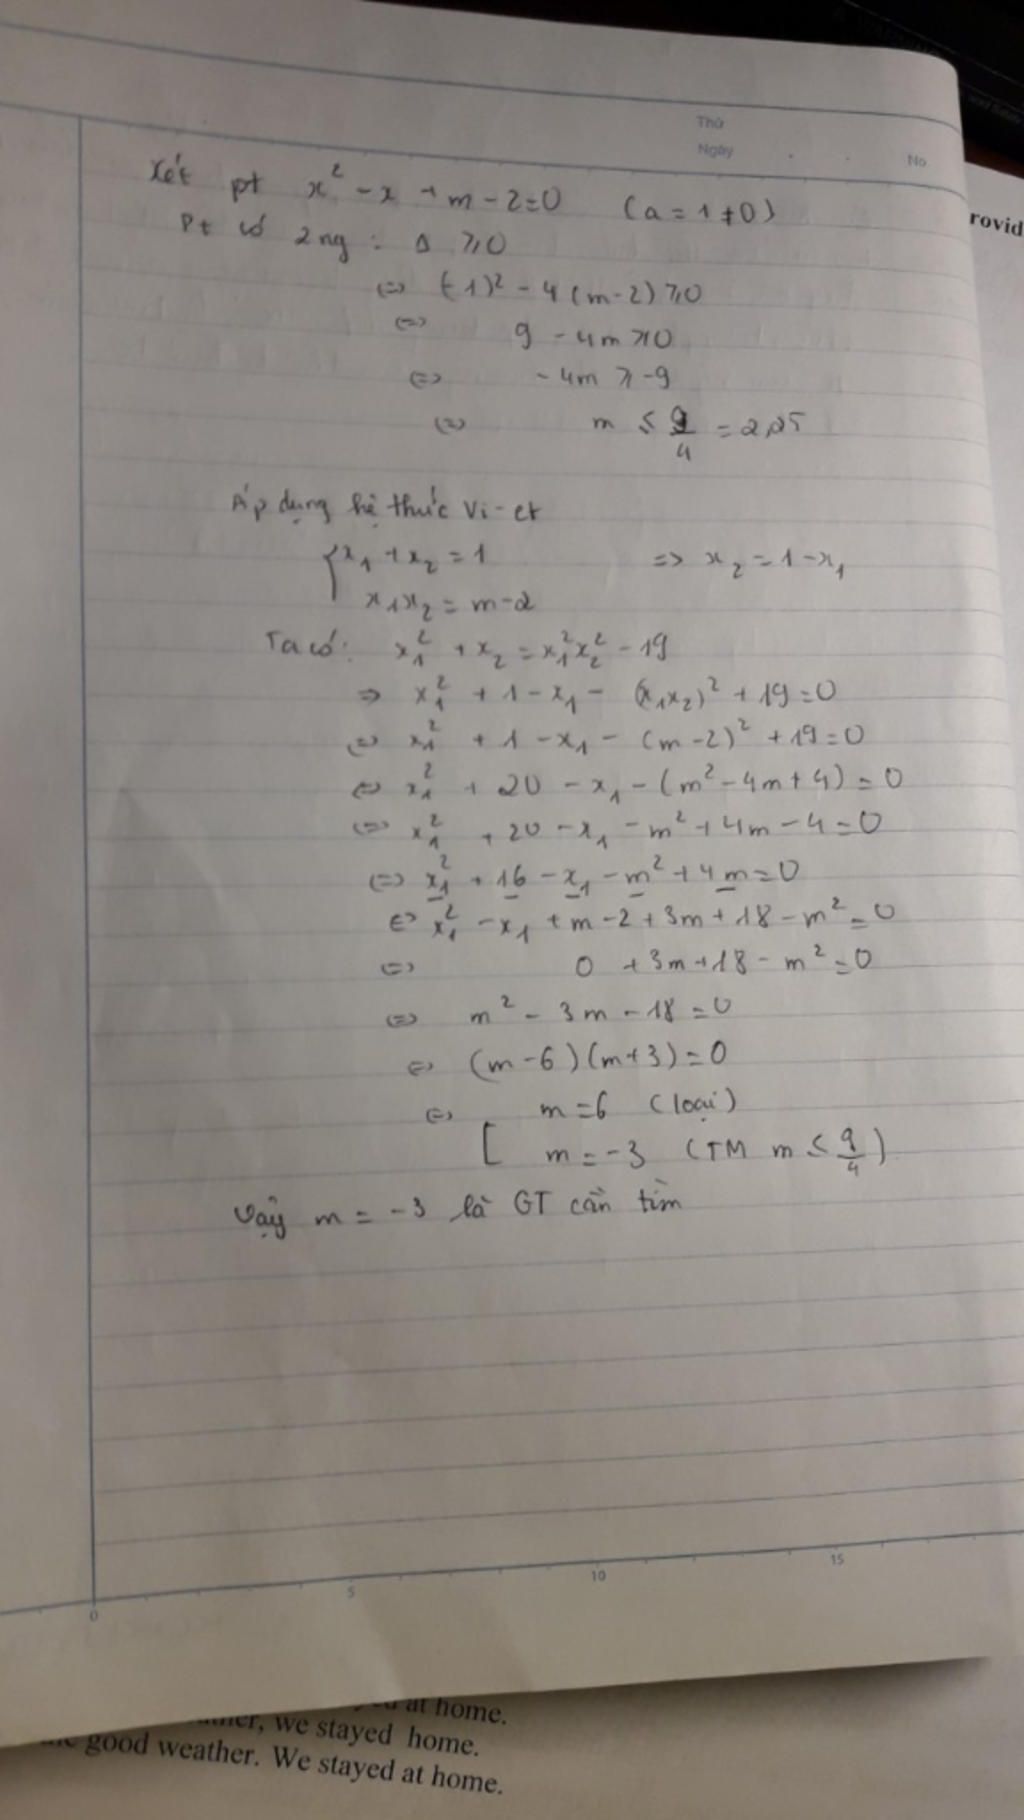 Thứ
Ngày
No
rovid
Xét pt x² - x + m - 2 = 0 (a = 1 ≠ 0)
Pt có 2 ng : Δ ≥ 0
⇔ (-1)² - 4(m-2) ≥ 0
⇔ 9 - 4m ≥ 0
⇔ -4m ≥ -9
⇔ m ≤ 9/4 = 2,25
Áp dụng hệ thức Vi-et
{ x₁ + x₂ = 1 ⇒ x₂ = 1 - x₁
x₁x₂ = m - 2
Ta có: x₁² + x₂ = x₁²x₂² - 19
⇒ x₁² + 1 - x₁ - (x₁x₂)² + 19 = 0
⇔ x₁² + 1 - x₁ - (m-2)² + 19 = 0
⇔ x₁² + 20 - x₁ - (m² - 4m + 4) = 0
⇔ x₁² + 20 - x₁ - m² + 4m - 4 = 0
⇔ x₁² + 16 - x₁ - m² + 4m = 0
⇔ x₁² - x₁ + m - 2 + 3m + 18 - m² = 0
⇔ 0 + 3m + 18 - m² = 0
⇔ m² - 3m - 18 = 0
⇔ (m - 6)(m + 3) = 0
⇔ m = 6 (loại)
[ m = -3 (TM m ≤ 9/4)
Vậy m = -3 là GT cần tìm
0 5 10 15
at home.
, we stayed home.
good weather. We stayed at home.